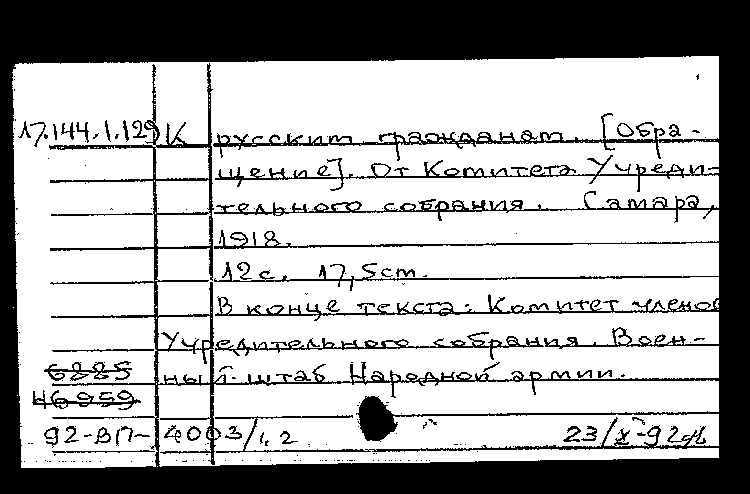 17.144.1.129 К русским гражданам. [Обра-
щение]. От Комитета Учреди-
тельного собрания. Самара,
1918.
12 с. 17,5 см.
В конце текста: Комитет членов
Учредительного собрания. Воен-
ный штаб Народной армии.
6885
46959
92-ВП-4003/1,2
23/X-92